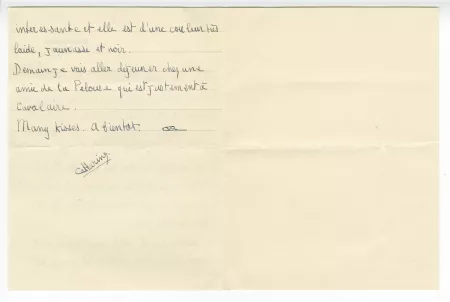 interessante et elle est d'une couleur très
laide, jaunasse et noir.
Demain je vais aller déjeuner chez une
amie de la Pelouse qui est justement à
Cavalaire.
Many kisses. A bientot.
Catherine